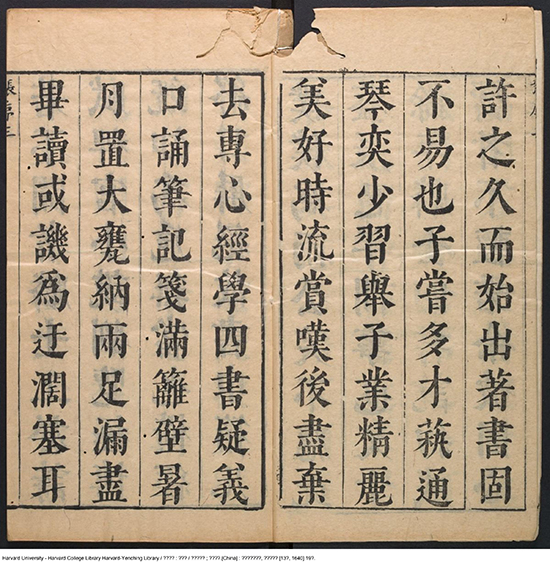 許之久而始出著書固
不易也子嘗多才蓺通
琴奕少習舉子業精麗
美好時流賞嘆後盡棄
去專心經學四書疑義
口誦筆記箋滿籬壁暑
月置大甕納兩足漏盡
畢讀或譏為迂濶塞耳
張序三
Harvard University - Harvard College Library Harvard-Yenching Library / ???? : ??? / ????? ; ???? [China] : ???????, ????? [13?, 1640] 18?.